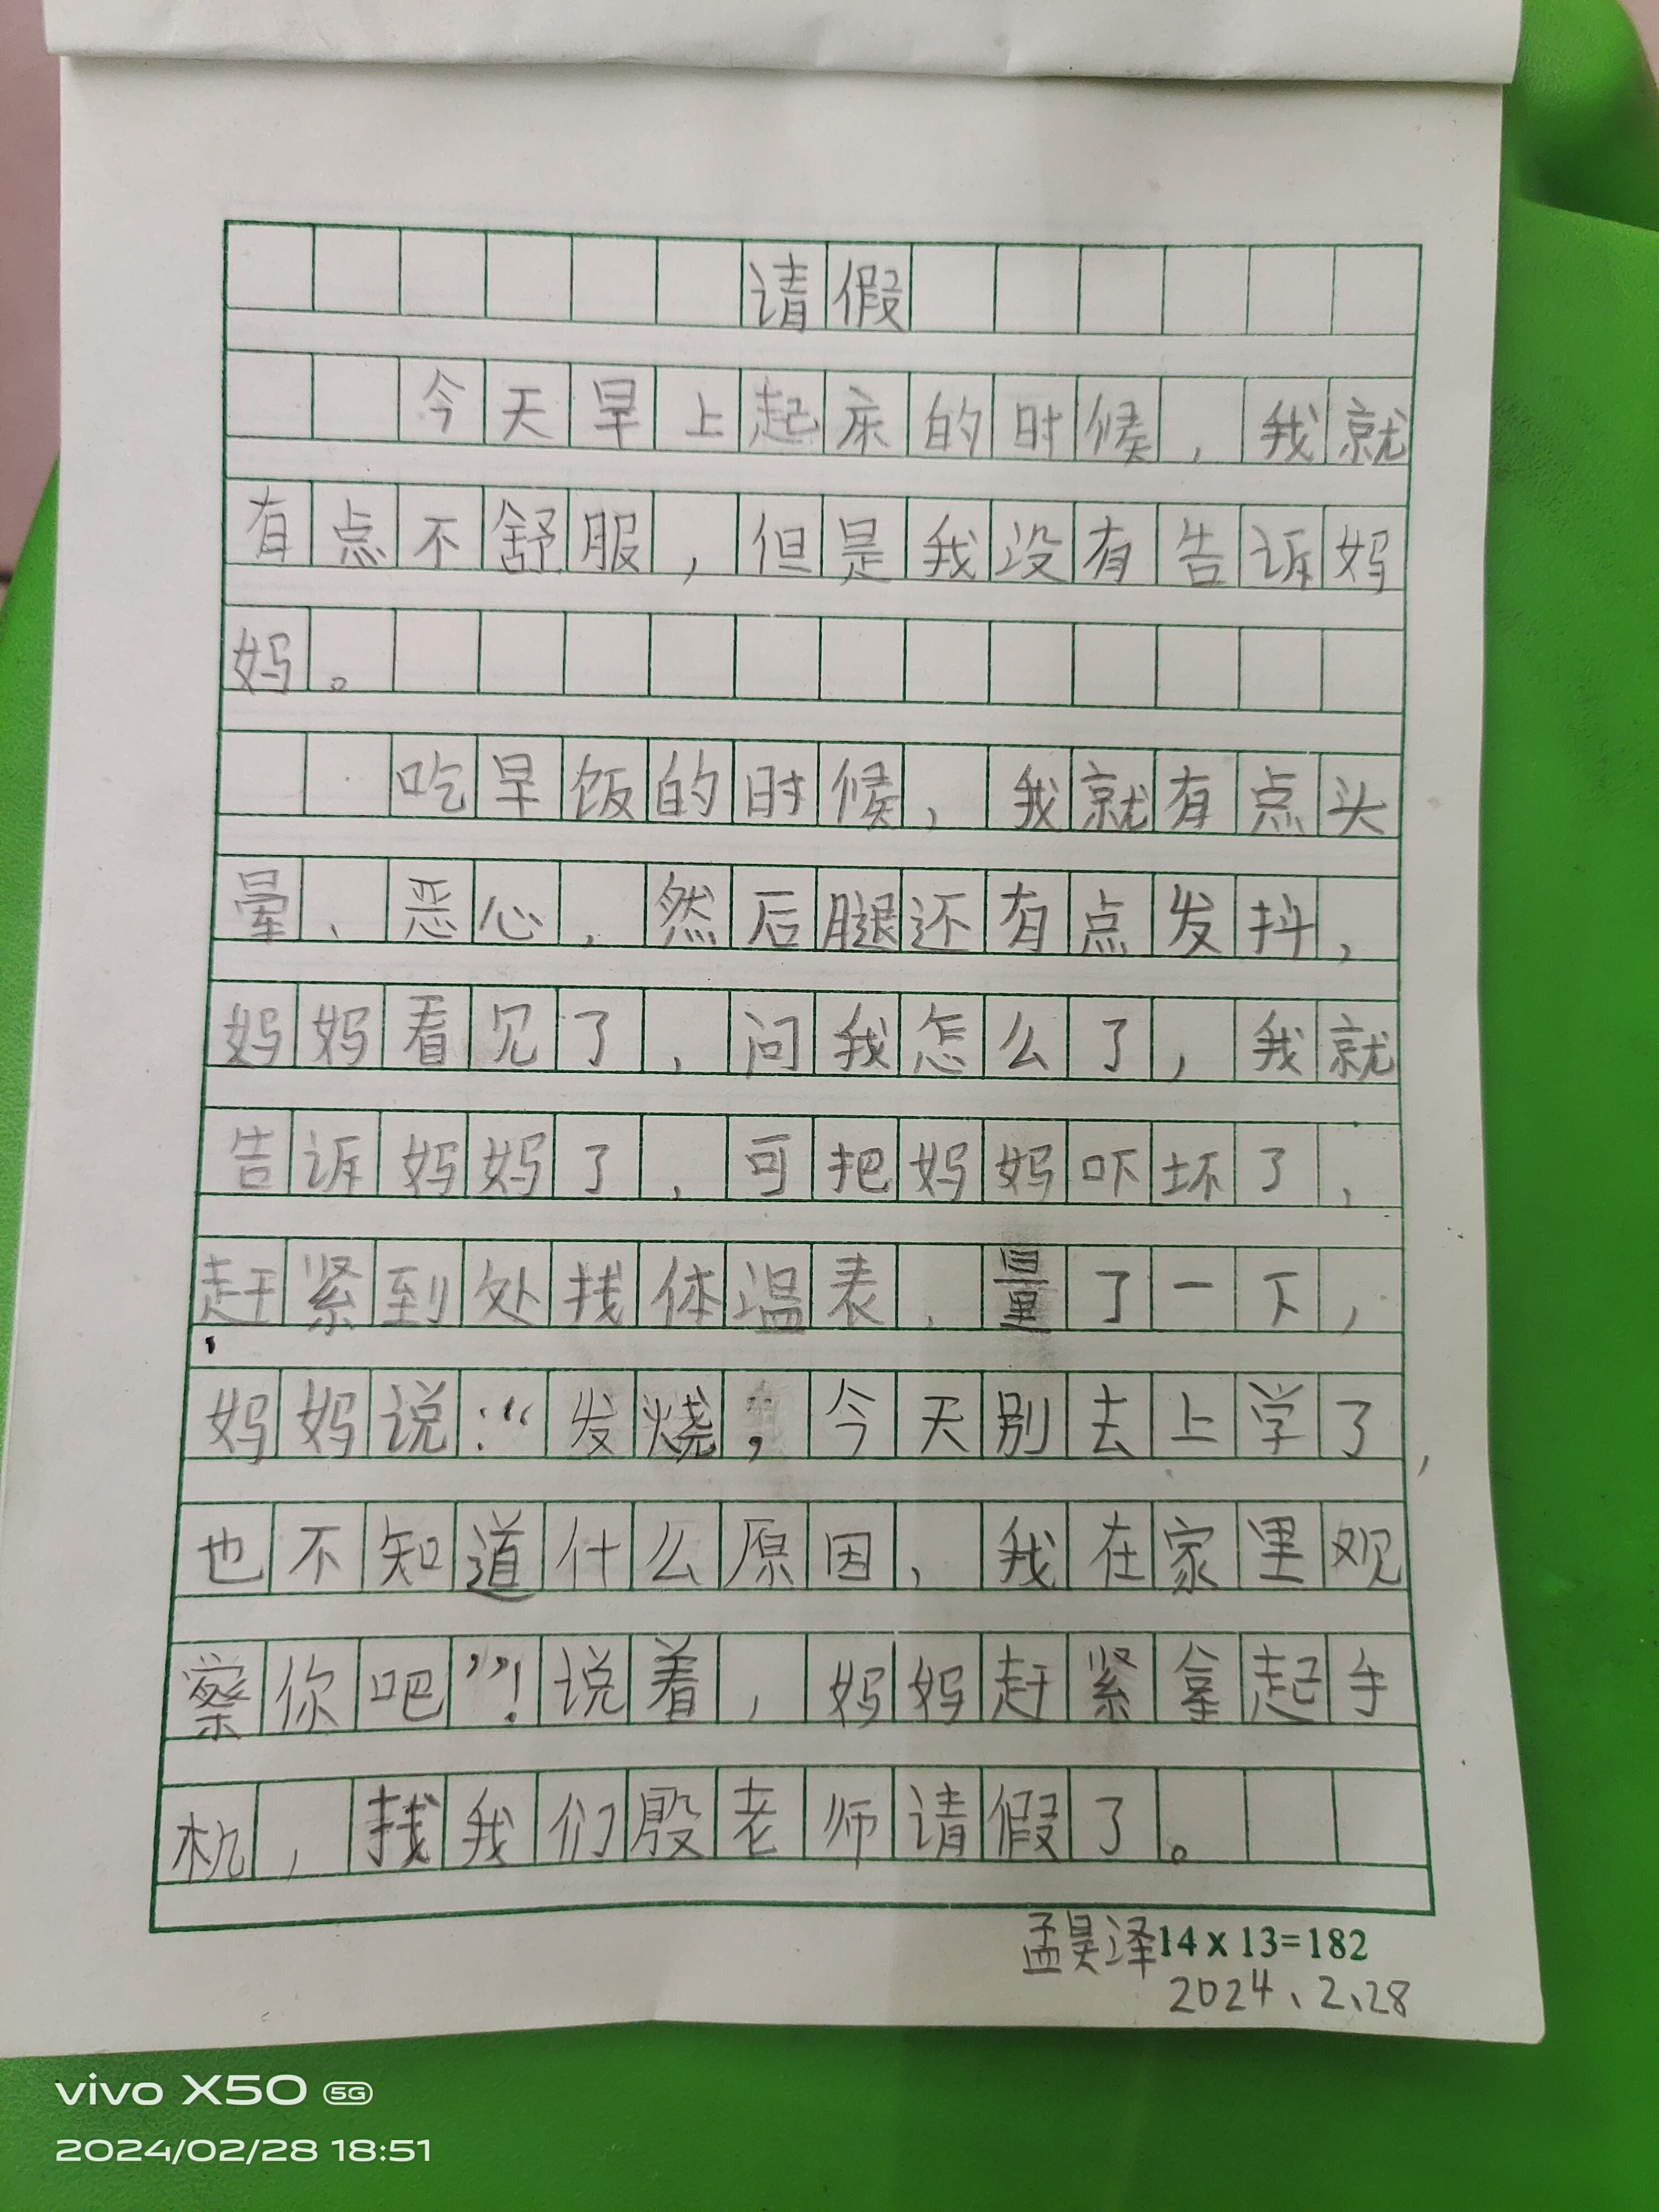 请假
今天早上起床的时候，我就
有点不舒服，但是我没有告诉妈
妈。
吃早饭的时候，我就有点头
晕、恶心，然后腿还有点发抖，
妈妈看见了，问我怎么了，我就
告诉妈妈了，可把妈妈吓坏了，
赶紧到处找体温表，量了一下，
妈妈说：“发烧，今天别去上学了，
也不知道什么原因，我在家里观
察你吧”！说着，妈妈赶紧拿起手
机，找我们殷老师请假了。
孟昊泽14 x 13=182
2024、2、28
vivo X50 5G
2024/02/28 18:51